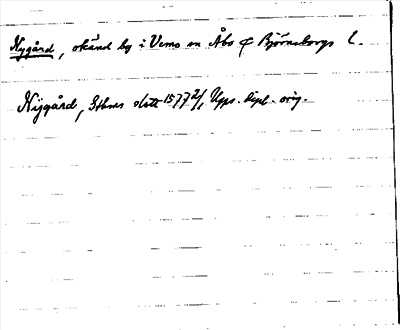 Nygård, okänd by i Vemo sn Åbo & Björneborgs l.
Nijgård, Sthms slott 1577 2/, Upps. dipl. orig.